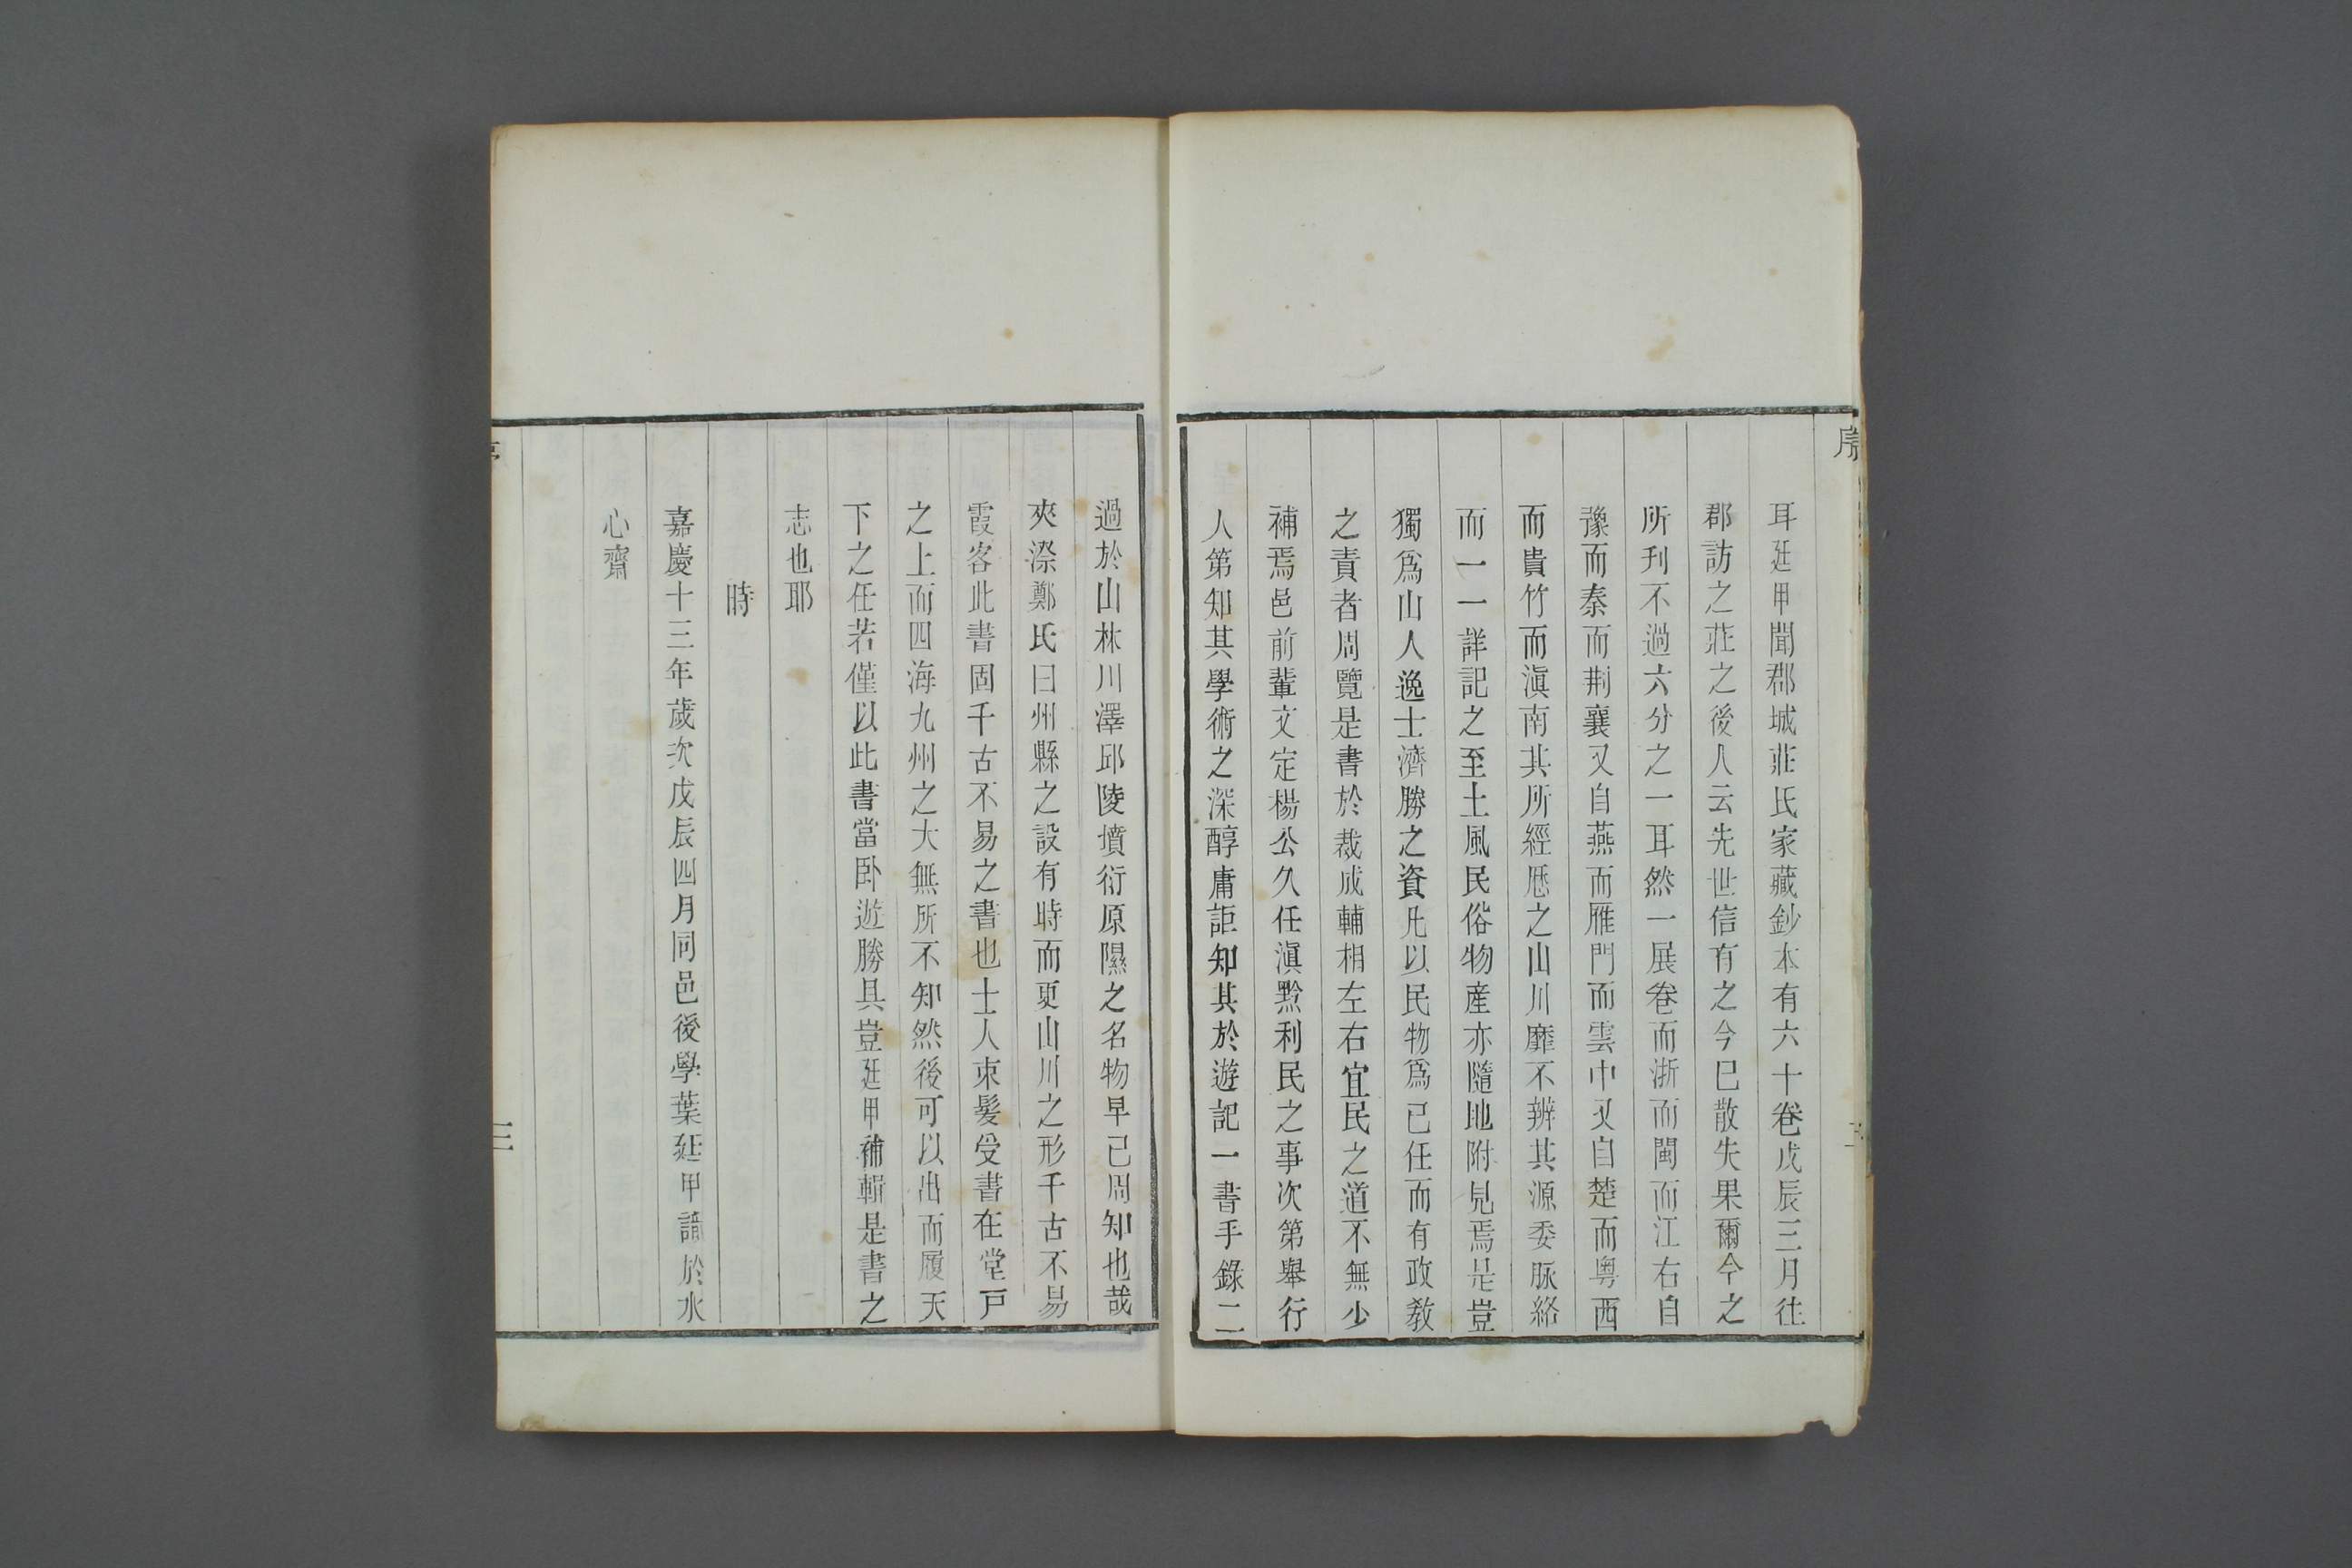 序
耳廷甲聞郡城莊氏家藏鈔本有六十卷戊辰三月往
郡訪之莊之後人云先世信有之今已散失果爾今之
所刊不過六分之一耳然一展卷而浙而閩而江右自
豫而秦而荆襄又自燕而雁門而雲中又自楚而粤西
而貴竹而滇南其所經歴之山川靡不辨其源委脉絡
而一一詳記之至土風民俗物産亦隨地附見焉是豈
獨爲山人逸士濟勝之資凡以民物爲已任而有政教
之責者周覽是書於裁成輔相左右宜民之道不無少
補焉邑前輩文定楊公久任滇黔利民之事次第舉行
人第知其學術之深醇庸詎知其於遊記一書手錄二
過於山林川澤邱陵墳衍原隰之名物早已周知也哉
夾漈鄭氏曰州縣之設有時而更山川之形千古不易
霞客此書固千古不易之書也士人束髪受書在堂戸
之上而四海九州之大無所不知然後可以出而履天
下之任若僅以此書當卧遊勝具豈廷甲補輯是書之
志也耶
時
嘉慶十三年歲次戊辰四月同邑後學葉廷甲識於水
心齋
三